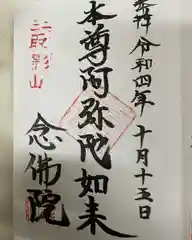 奉拝 令和四年十月十五日
本尊阿弥陀如来
念佛院